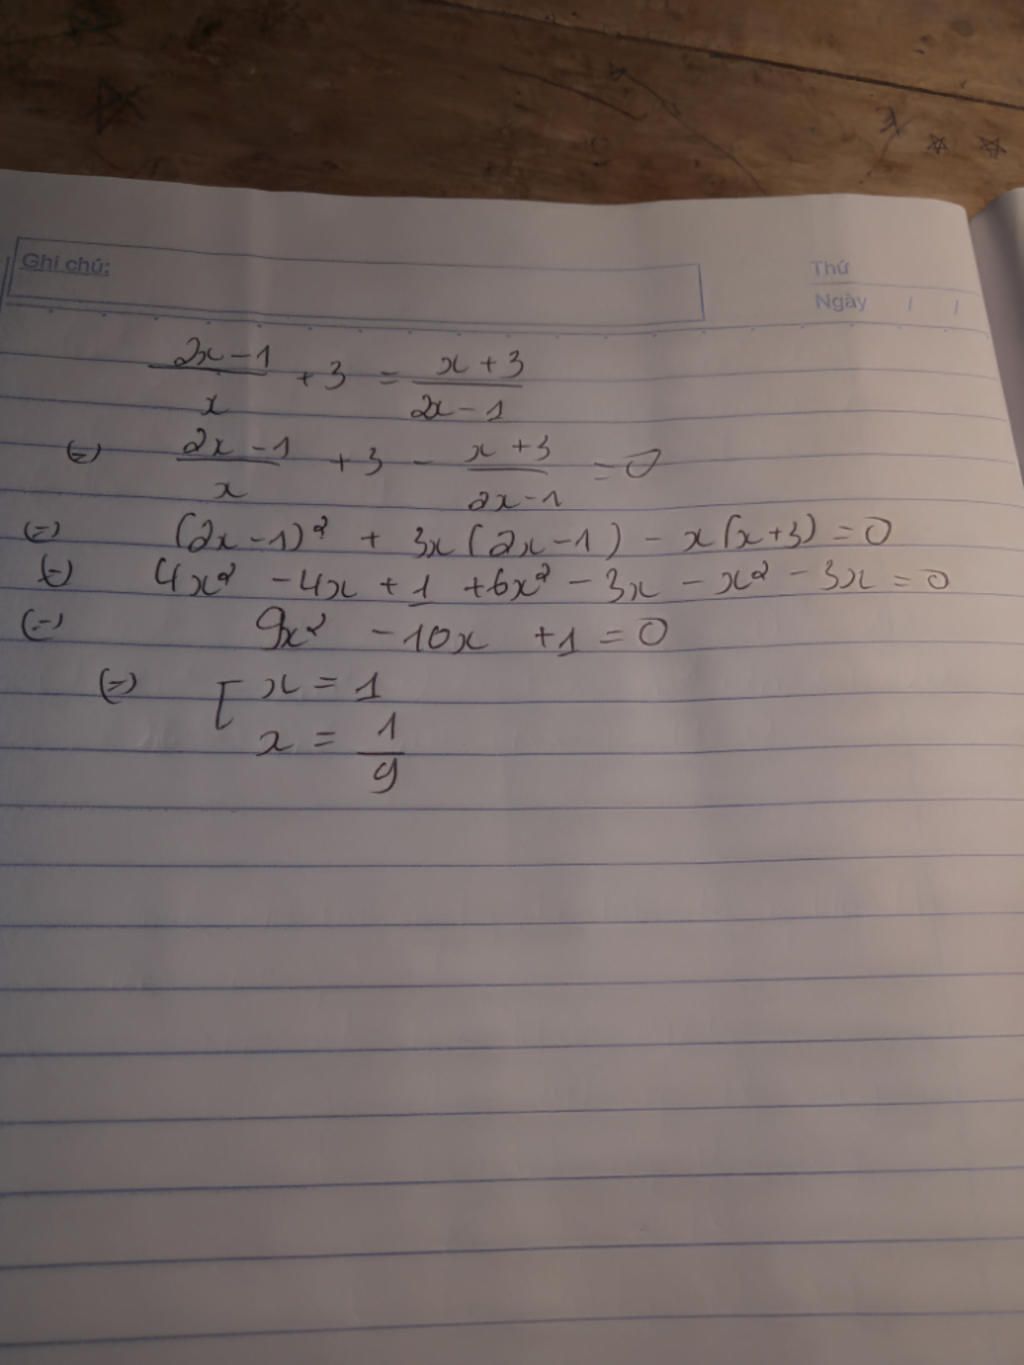 Ghi chú:
Thứ
Ngày / /
(2x-1)/x + 3 = (x+3)/(2x-1)
(=) (2x-1)/x + 3 - (x+3)/(2x-1) = 0
(=) (2x-1)² + 3x(2x-1) - x(x+3) = 0
(=) 4x² - 4x + 1 + 6x² - 3x - x² - 3x = 0
(=) 9x² - 10x + 1 = 0
(=) [ x = 1
x = 1/9